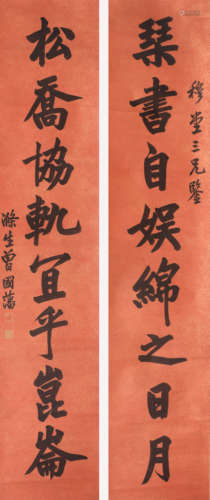 穆堂三兄鑒
琹書自娱綿之日月
松喬協軌冝乎崑崙
滌生曾國藩